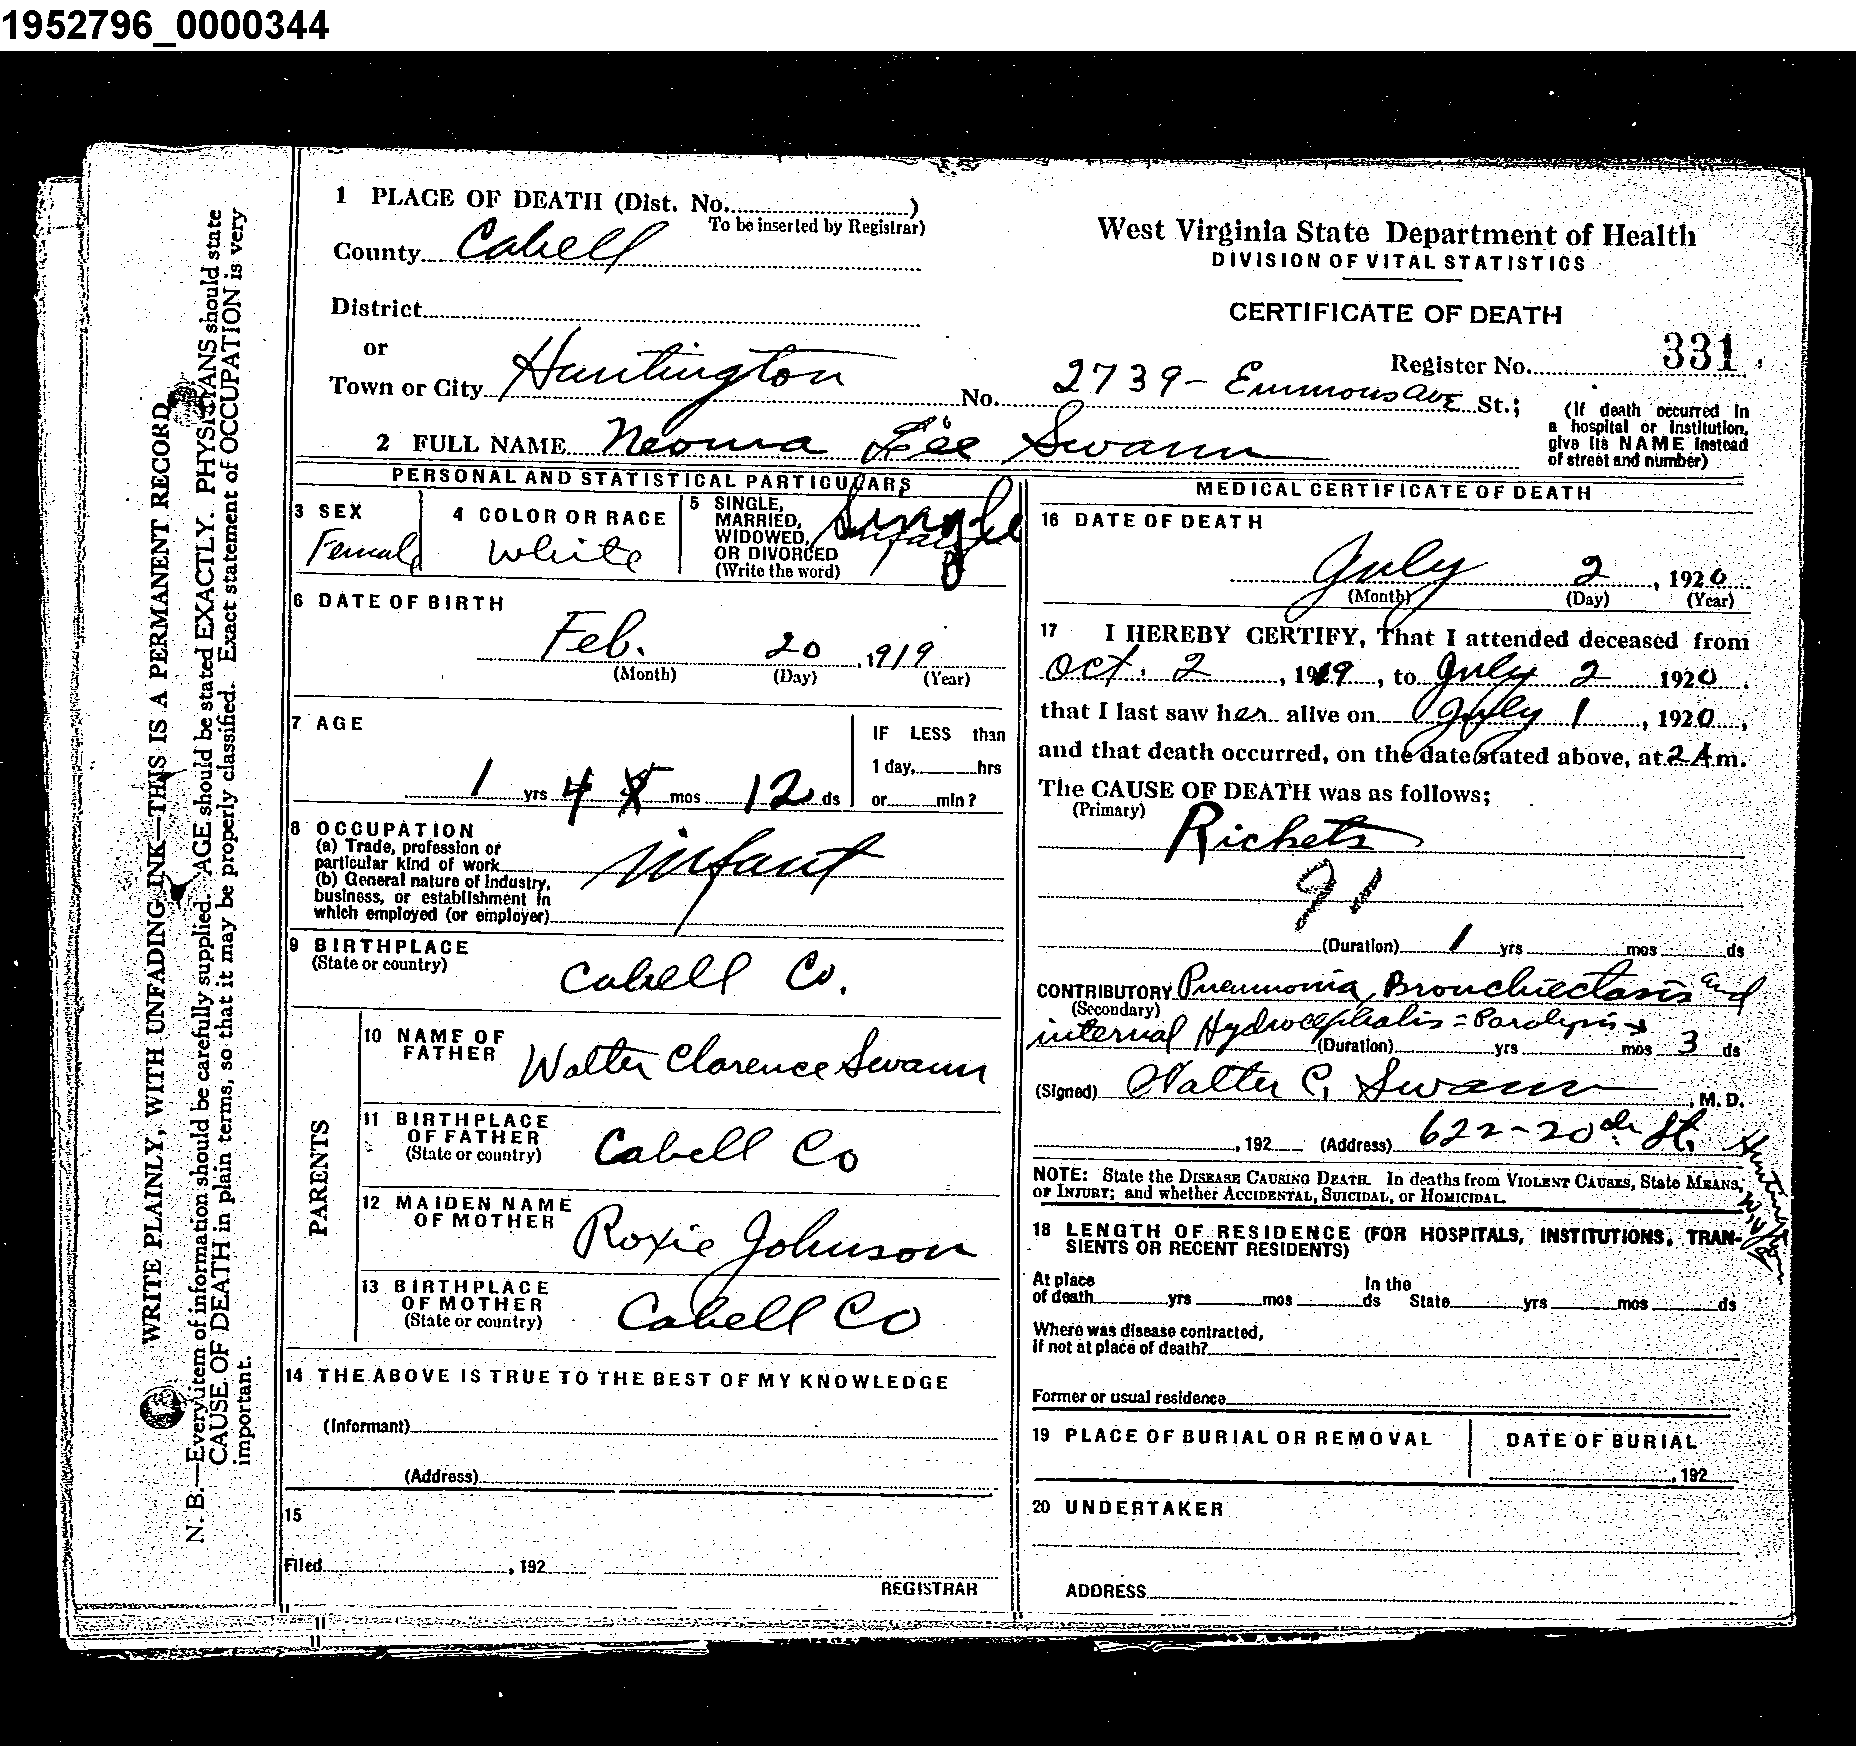 1952796_0000344
1 PLACE OF DEATH (Dist. No. )
To be inserted by Registrar)
County Cabell
District
or
Town or City Huntington No. 2739- Emmons ave St.;
(If death occurred in
a hospital or institution,
give its NAME instead
of street and number)
West Virginia State Department of Health
DIVISION OF VITAL STATISTICS
CERTIFICATE OF DEATH
Register No. 331
2 FULL NAME Neoma Lee Swann
PERSONAL AND STATISTICAL PARTICULARS
3 SEX
Female
4 COLOR OR RACE
White
5 SINGLE,
MARRIED,
WIDOWED,
OR DIVORCED
(Write the word)
Single
6 DATE OF BIRTH
Feb. 20 , 1919
(Month) (Day) (Year)
7 AGE
1 yrs 4 mos 12 ds
IF LESS than
1 day, hrs
or min?
8 OCCUPATION
(a) Trade, profession or
particular kind of work
(b) General nature of Industry,
business, or establishment in
which employed (or employer)
infant
9 BIRTHPLACE
(State or country)
Cabell Co.
PARENTS
10 NAME OF
FATHER
Walter Clarence Swann
11 BIRTHPLACE
OF FATHER
(State or country)
Cabell Co
12 MAIDEN NAME
OF MOTHER
Roxie Johnson
13 BIRTHPLACE
OF MOTHER
(State or country)
Cabell Co
14 THE ABOVE IS TRUE TO THE BEST OF MY KNOWLEDGE
(Informant)
(Address)
15
Filed , 192
REGISTRAR
MEDICAL CERTIFICATE OF DEATH
16 DATE OF DEATH
July 2 , 1920
(Month) (Day) (Year)
17 I HEREBY CERTIFY, That I attended deceased from
Oct. 2 , 1919 , to July 2 1920 .
that I last saw her alive on July 1 , 1920 ,
and that death occurred, on the date stated above, at 2 A m.
The CAUSE OF DEATH was as follows;
(Primary)
Rickets
91
(Duration) 1 yrs mos ds
CONTRIBUTORY Pneumonia, Bronchiectasis and
(Secondary)
internal Hydrocephalis = Paralysis
(Duration) yrs mos 3 ds
(Signed) Walter C. Swann , M. D.
, 192 (Address) 622-20th St. Huntington W.Va
NOTE: State the DISEASE CAUSING DEATH. In deaths from VIOLENT CAUSES, State MEANS,
OF INJURY; and whether ACCIDENTAL, SUICIDAL, or HOMICIDAL.
18 LENGTH OF RESIDENCE (FOR HOSPITALS, INSTITUTIONS, TRAN-
SIENTS OR RECENT RESIDENTS)
At place In the
of death yrs mos ds State yrs mos ds
Where was disease contracted,
if not at place of death?
Former or usual residence
19 PLACE OF BURIAL OR REMOVAL
DATE OF BURIAL
, 192
20 UNDERTAKER
ADDRESS
WRITE PLAINLY, WITH UNFADING INK—THIS IS A PERMANENT RECORD
N. B.—Every item of information should be carefully supplied. AGE should be stated EXACTLY. PHYSICIANS should state
CAUSE OF DEATH in plain terms, so that it may be properly classified. Exact statement of OCCUPATION is very
important.